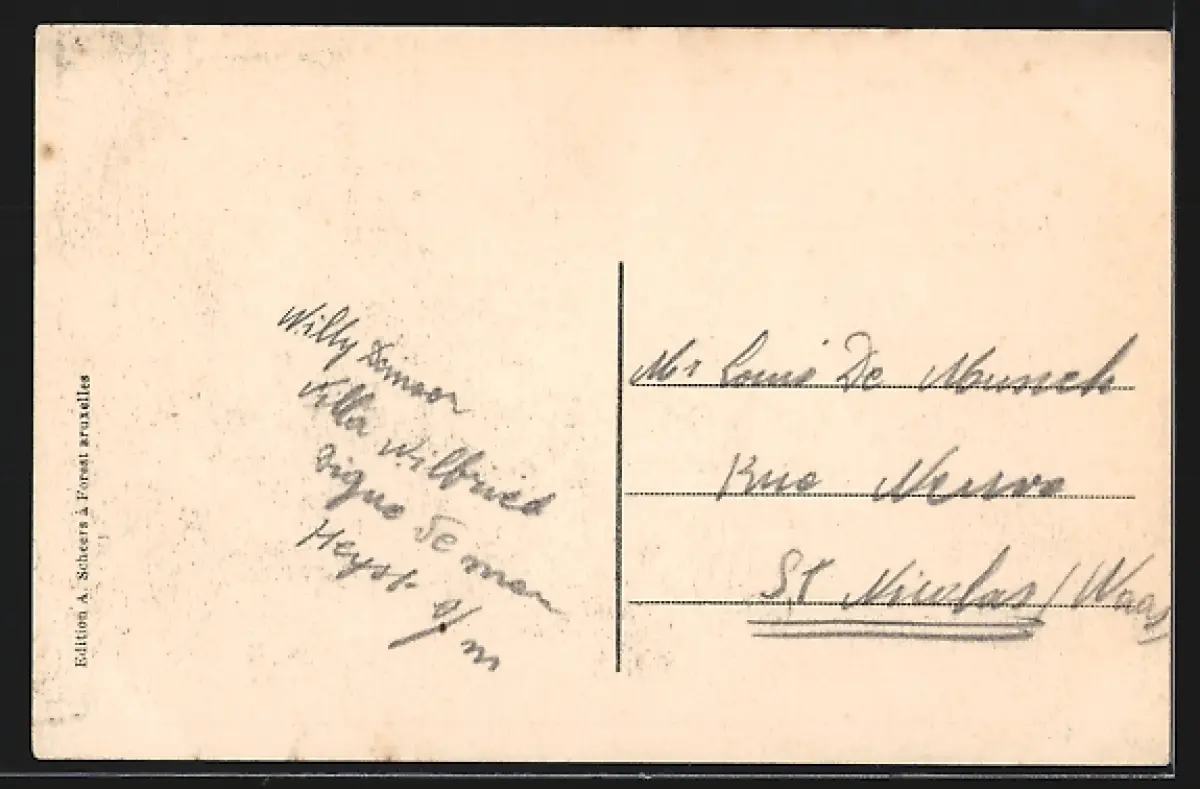 Edition A. Scheers à Forest Bruxelles
Willy Demoor
Villa Wilfried
Digue de mer
Heyst s/m
Mr Louis De Munck
Rue Neuve
St Nicolas (Waas)